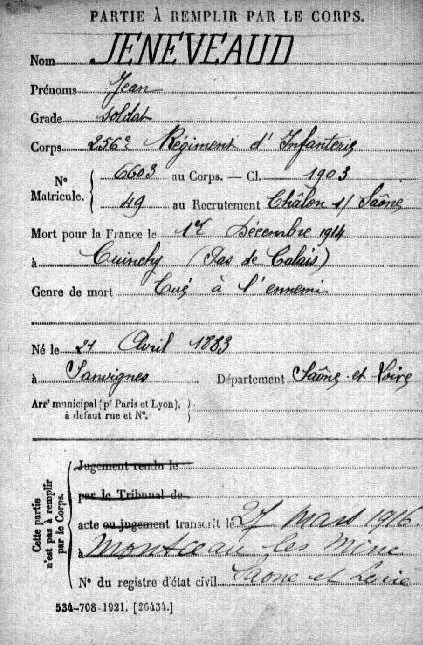 PARTIE À REMPLIR PAR LE CORPS.
Nom JENEVEAUD
Prénoms Jean
Grade soldat
Corps 256e Régiment d'Infanterie
N° Matricule. { 6603 au Corps. — Cl. 1903
49 au Recrutement Châlon s/ Saône
Mort pour la France le 17 Décembre 1914
à Cuinchy (Pas de Calais)
Genre de mort Tué à l'ennemi
Né le 21 Avril 1883
à Sanvignes Département Saône et Loire
Arrt municipal (pr Paris et Lyon),
à défaut rue et N°.
Cette partie n'est pas à remplir par le Corps.
Jugement rendu le
par le Tribunal de
acte ou jugement transcrit le 27 mars 1916
à Montceau les Mine
N° du registre d'état civil Saone et Loire
534-708-1921. [26434.]